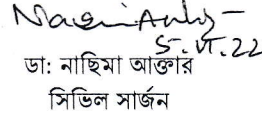 5.VI.22
ডা: নাছিমা আক্তার
সিভিল সার্জন